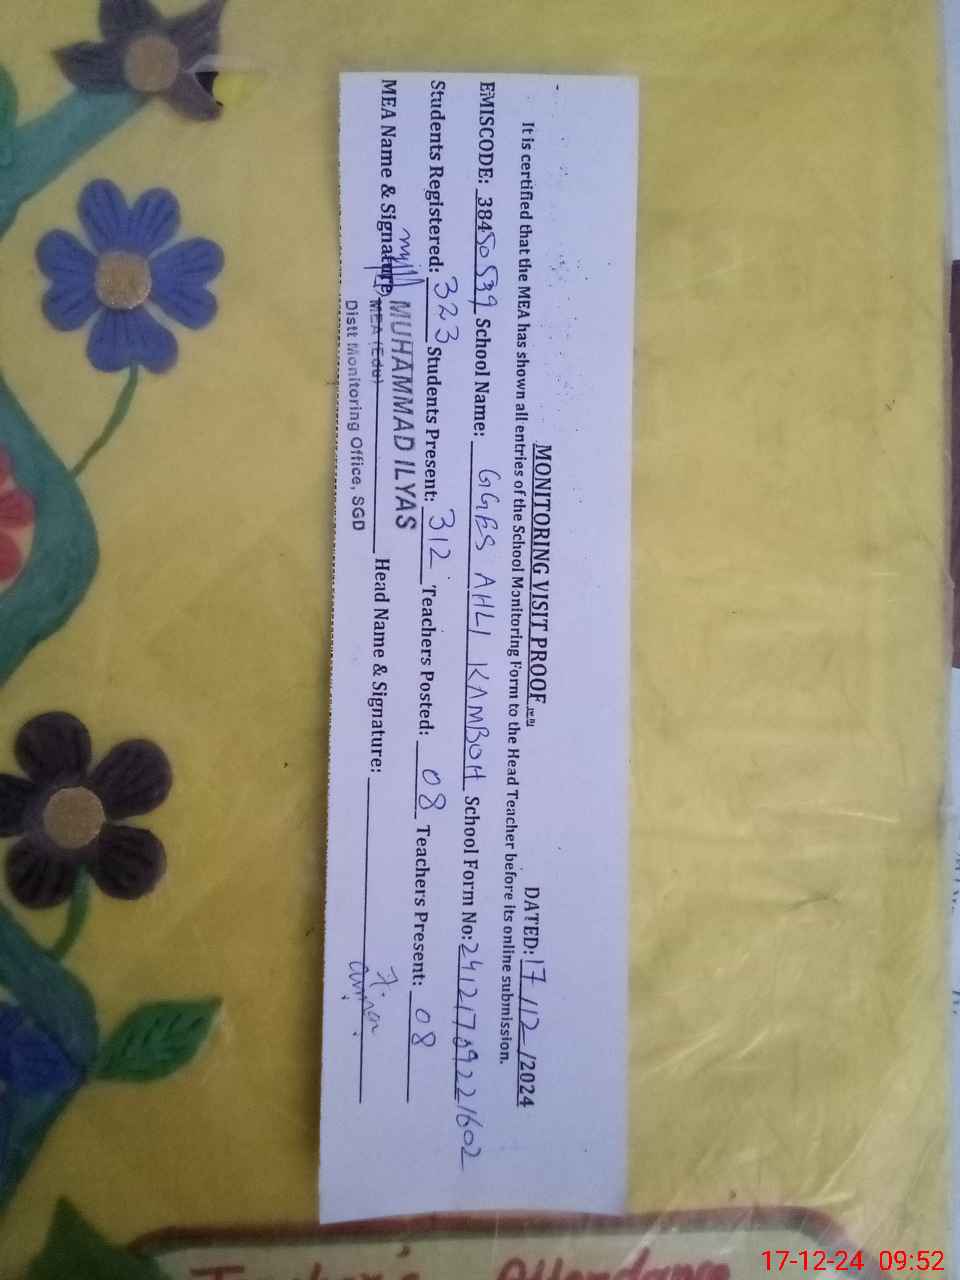 MONITORING VISIT PROOF
DATED: 17/12/2024
It is certified that the MEA has shown all entries of the School Monitoring Form to the Head Teacher before its online submission.
EMISCODE: 38450539 School Name: GGES AHLI KAMBOH School Form No: 24121709221602
Students Registered: 323 Students Present: 312 Teachers Posted: 08 Teachers Present: 08
MEA Name & Signature MUHAMMAD ILYAS Head Name & Signature:
MEA (Edu)
Distt Monitoring Office, SGD
Teacher's Attendance
17-12-24 09:52